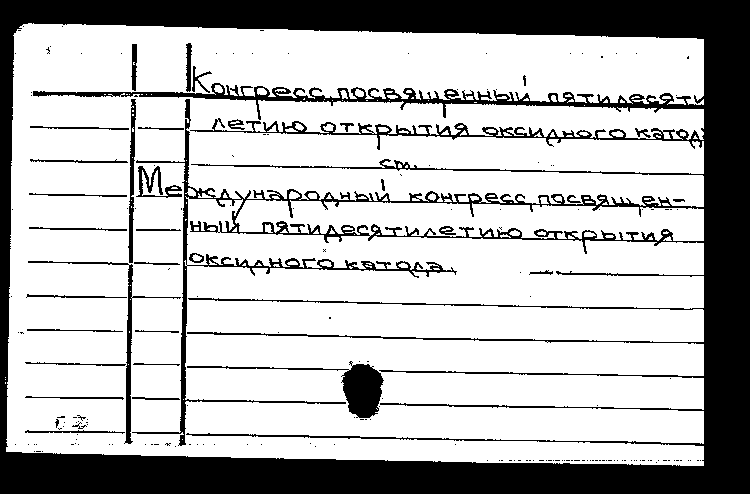 Конгресс, посвященный пятидесяти
летию открытия оксидного катода
ст.
Международный конгресс, посвящен-
ный пятидесятилетию открытия
оксидного катода.